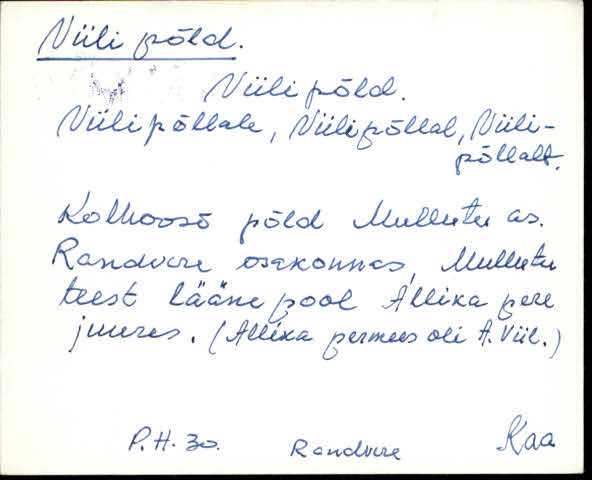 Viili põld.
Viili põld.
Viili põllale, Viili põllal, Viili-
põllalt.
Kolhoosõ põld Mullutu as.
Randvere osakonnas, Mullutu
teest lääne pool Allika pere
juures. (Allika permees oli A. Viil.)
P.H. 30. Randvere Kaa